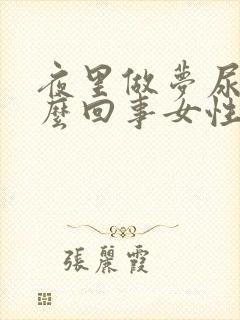 夜里做夢尿
麼回事女性
張麗霞